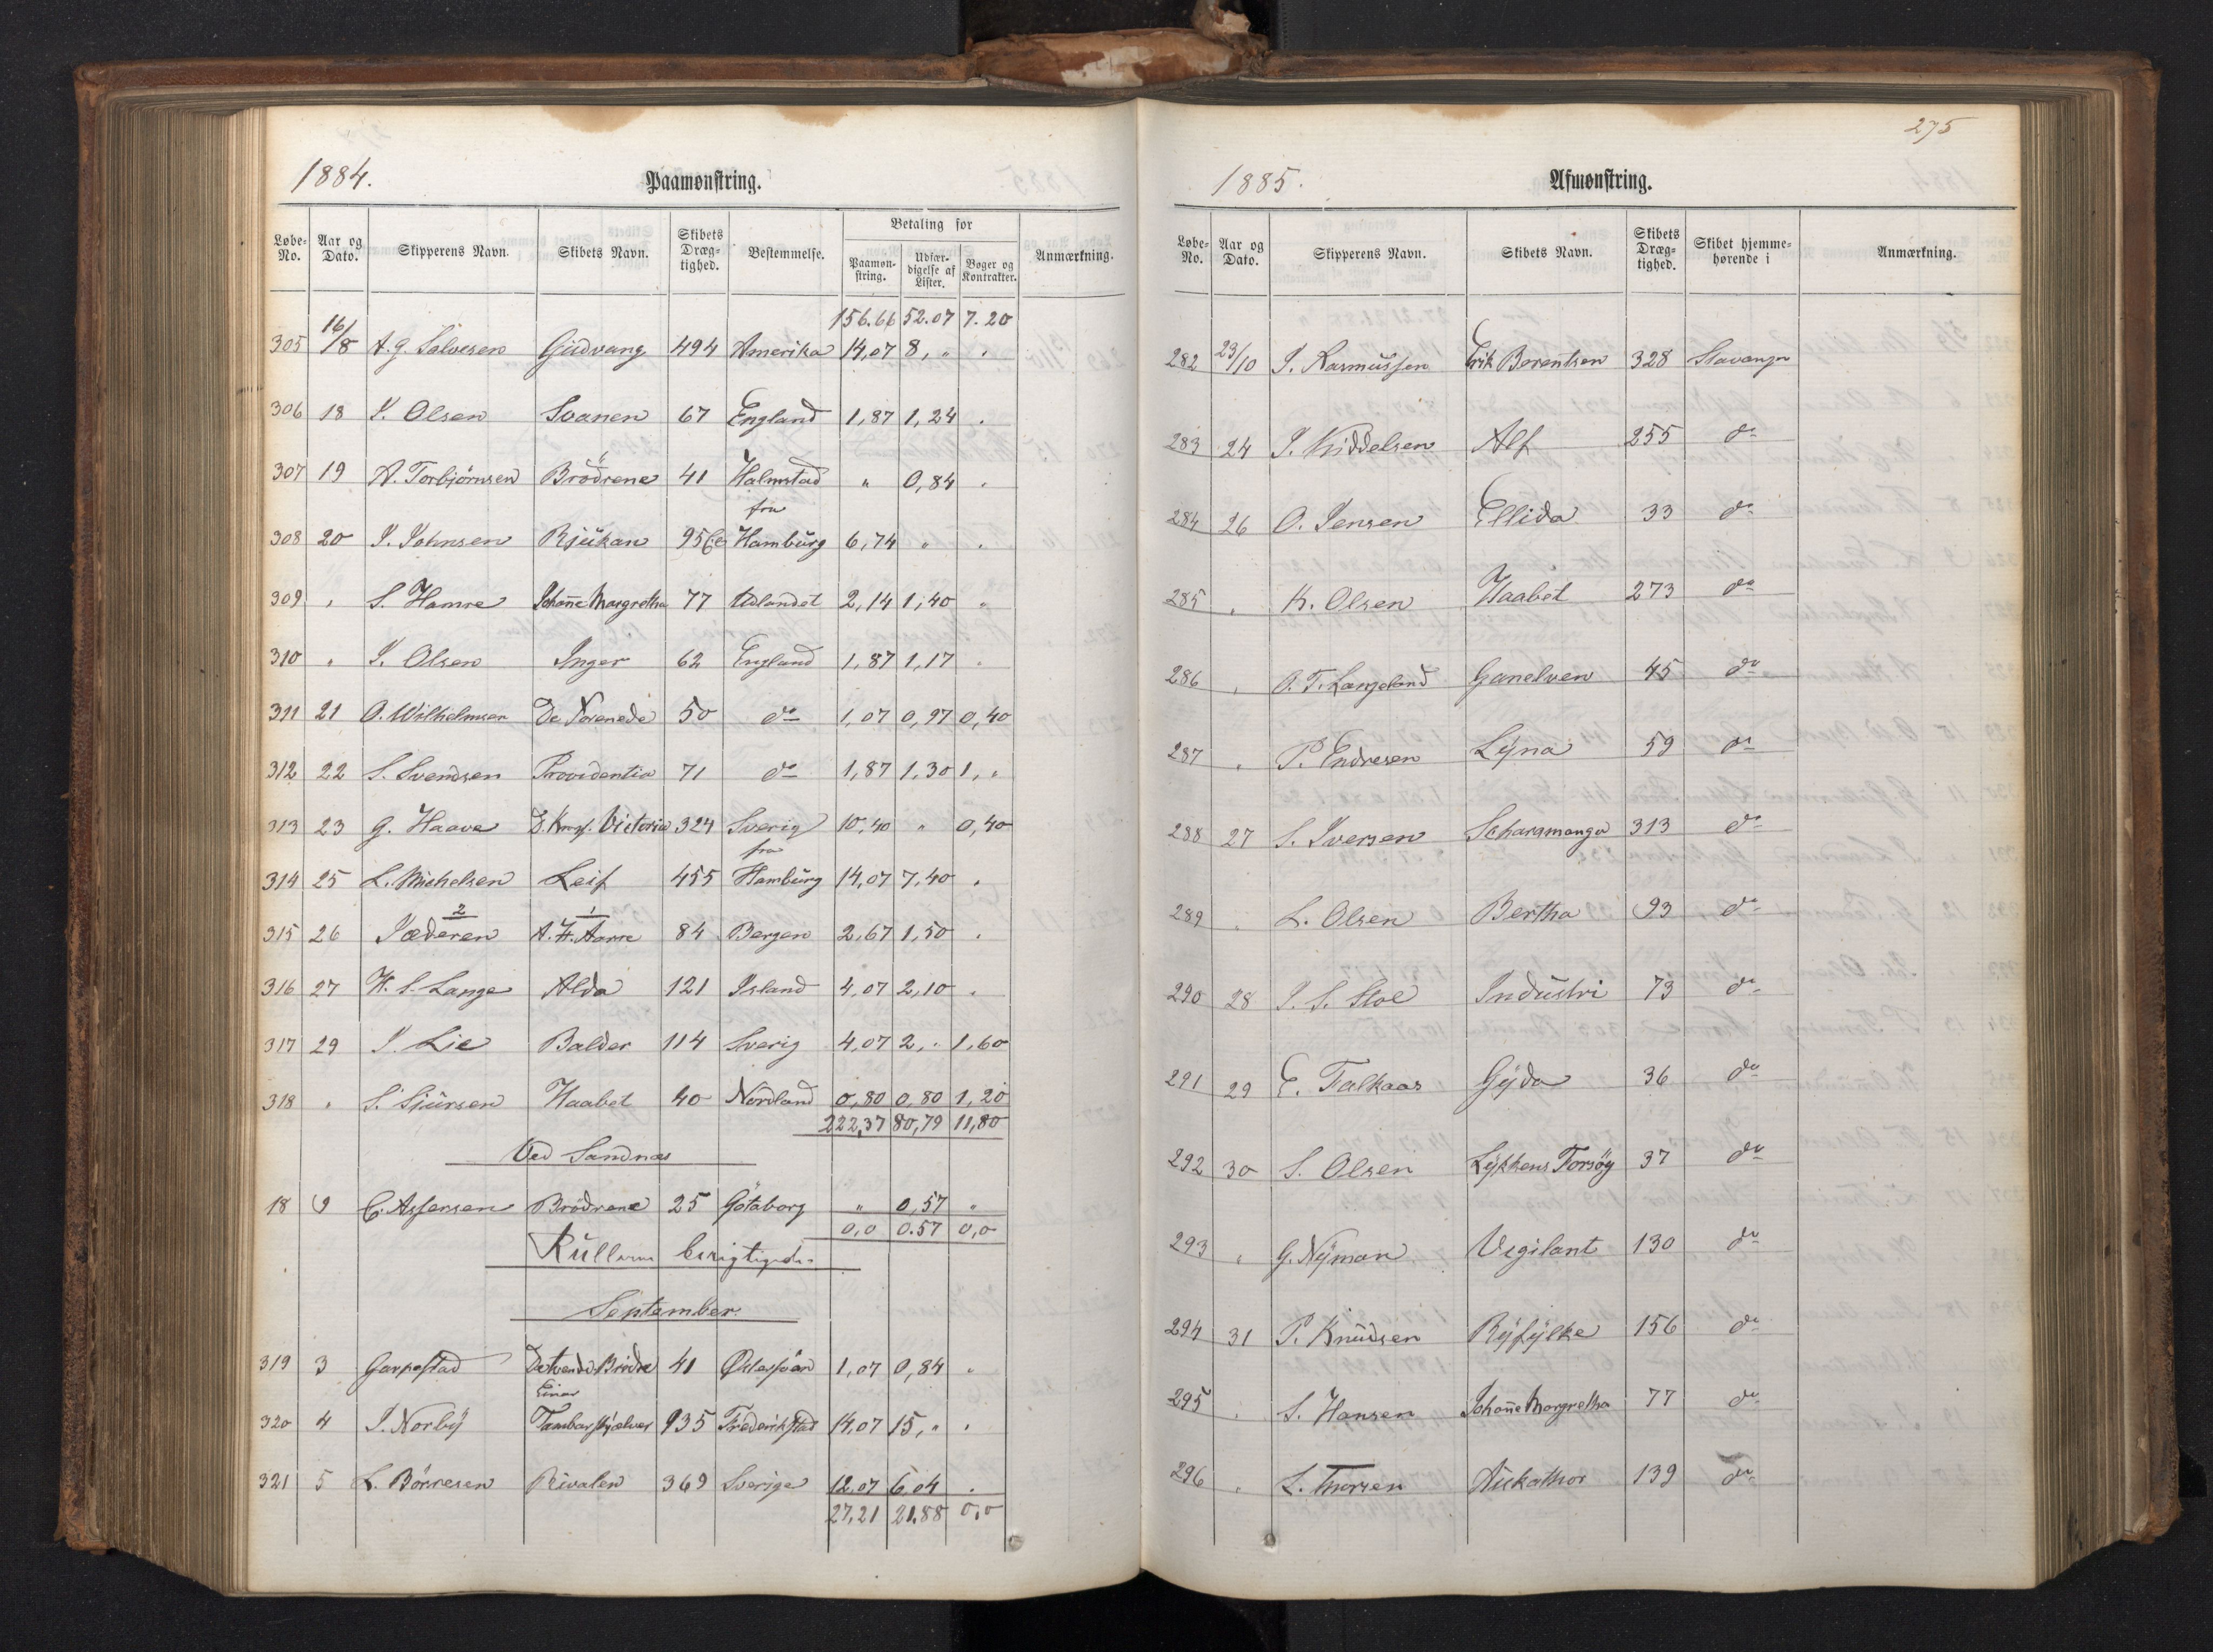 1884.
Paamønstring.
Løbe-No. Aar og Dato. Skipperens Navn. Skibets Navn. Skibets Drægtighed. Bestemmelse. Betaling for Paamønstring. Udfærdigelse af Lister. Bøger og Kontrakter. Anmærkning.
156.66 52.07 7.20
305 16/8 A. G. Salvesen Gudvang 494 Amerika 14,07 8, " "
306 18 I. Olsen Svanen 67 England 1,87 1,24 "
307 19 A. Torbjörnsen Brödrene 41 Halmstad " 0,84 "
308 20 I. Johnsen Rjukan 95 fra Hamburg 6,74 " "
309 " S. Hamre Johañe Margretha 77 Udlandet 2,14 1,40 "
310 " I. Olsen Inger 62 England 1,87 1,17 "
311 21 O. Wilhelmsen De Forenede 50 do 1,07 0,97 0,40
312 22 S. Svendsen Providentia 71 do 1,87 1,30 1, "
313 23 G. Haave Victoria 324 Sverig 10,40 " 0,40
314 25 L. Michelsen Leif 455 fra Hamburg 14,07 7,40 "
315 26 2 Jæderen 1 A. H. Aarre 84 Bergen 2,67 1,50 "
316 27 H. S. Lange Alda 121 Island 4,07 2,10 "
317 29 I. Lie Balder 114 Sverig 4,07 2, " 1,60
318 " S. Sjursen Haabet 40 Nordland 0,80 0,80 1,20
222,37 80,79 11,80
Ved Sandnæs
18 9 C. Assersen Brödrene 25 Götaborg " 0,57 "
0,0 0.57 0,0
Rullerne berigtigede.
September.
319 3 Garpestad De tvende Brødre 41 1,07 0,84 "
320 4 I. Norby Einar Tambarskjælver 935 Frederikstad 14,07 15, " "
321 5 L. Börresen Rivalen 369 Sverige 12,07 6,04 "
27,21 21,88 0,0
275
1885.
Afmønstring.
Løbe-No. Aar og Dato. Skipperens Navn. Skibets Navn. Skibets Drægtighed. Skibet hjemmehørende i Anmærkning.
282 23/10 I. Rasmussen Erik Berentsen 328 Stavanger
283 24 I. Kiddelsen Alf 255 do
284 26 O. Jensen Ellida 33 do
285 " K. Olsen Haabet 273 do
286 " O. T. Langeland Ganelven 45 do
287 " P. Endresen Lyna 59 do
288 27 S. Iversen Scharamanga 313 do
289 " L. Olsen Bertha 93 do
290 28 I. S. Stoe Industri 73 do
291 29 E. Falkaas Gyda 36 do
292 30 S. Olsen Lykkens Forsøg 37 do
293 " G. Nyman Vigilant 130 do
294 31 P. Knudsen Ryfylke 156 do
295 " S. Hansen Johañe Margretha 77 do
296 " L. Thorsen Aukathor 139 do